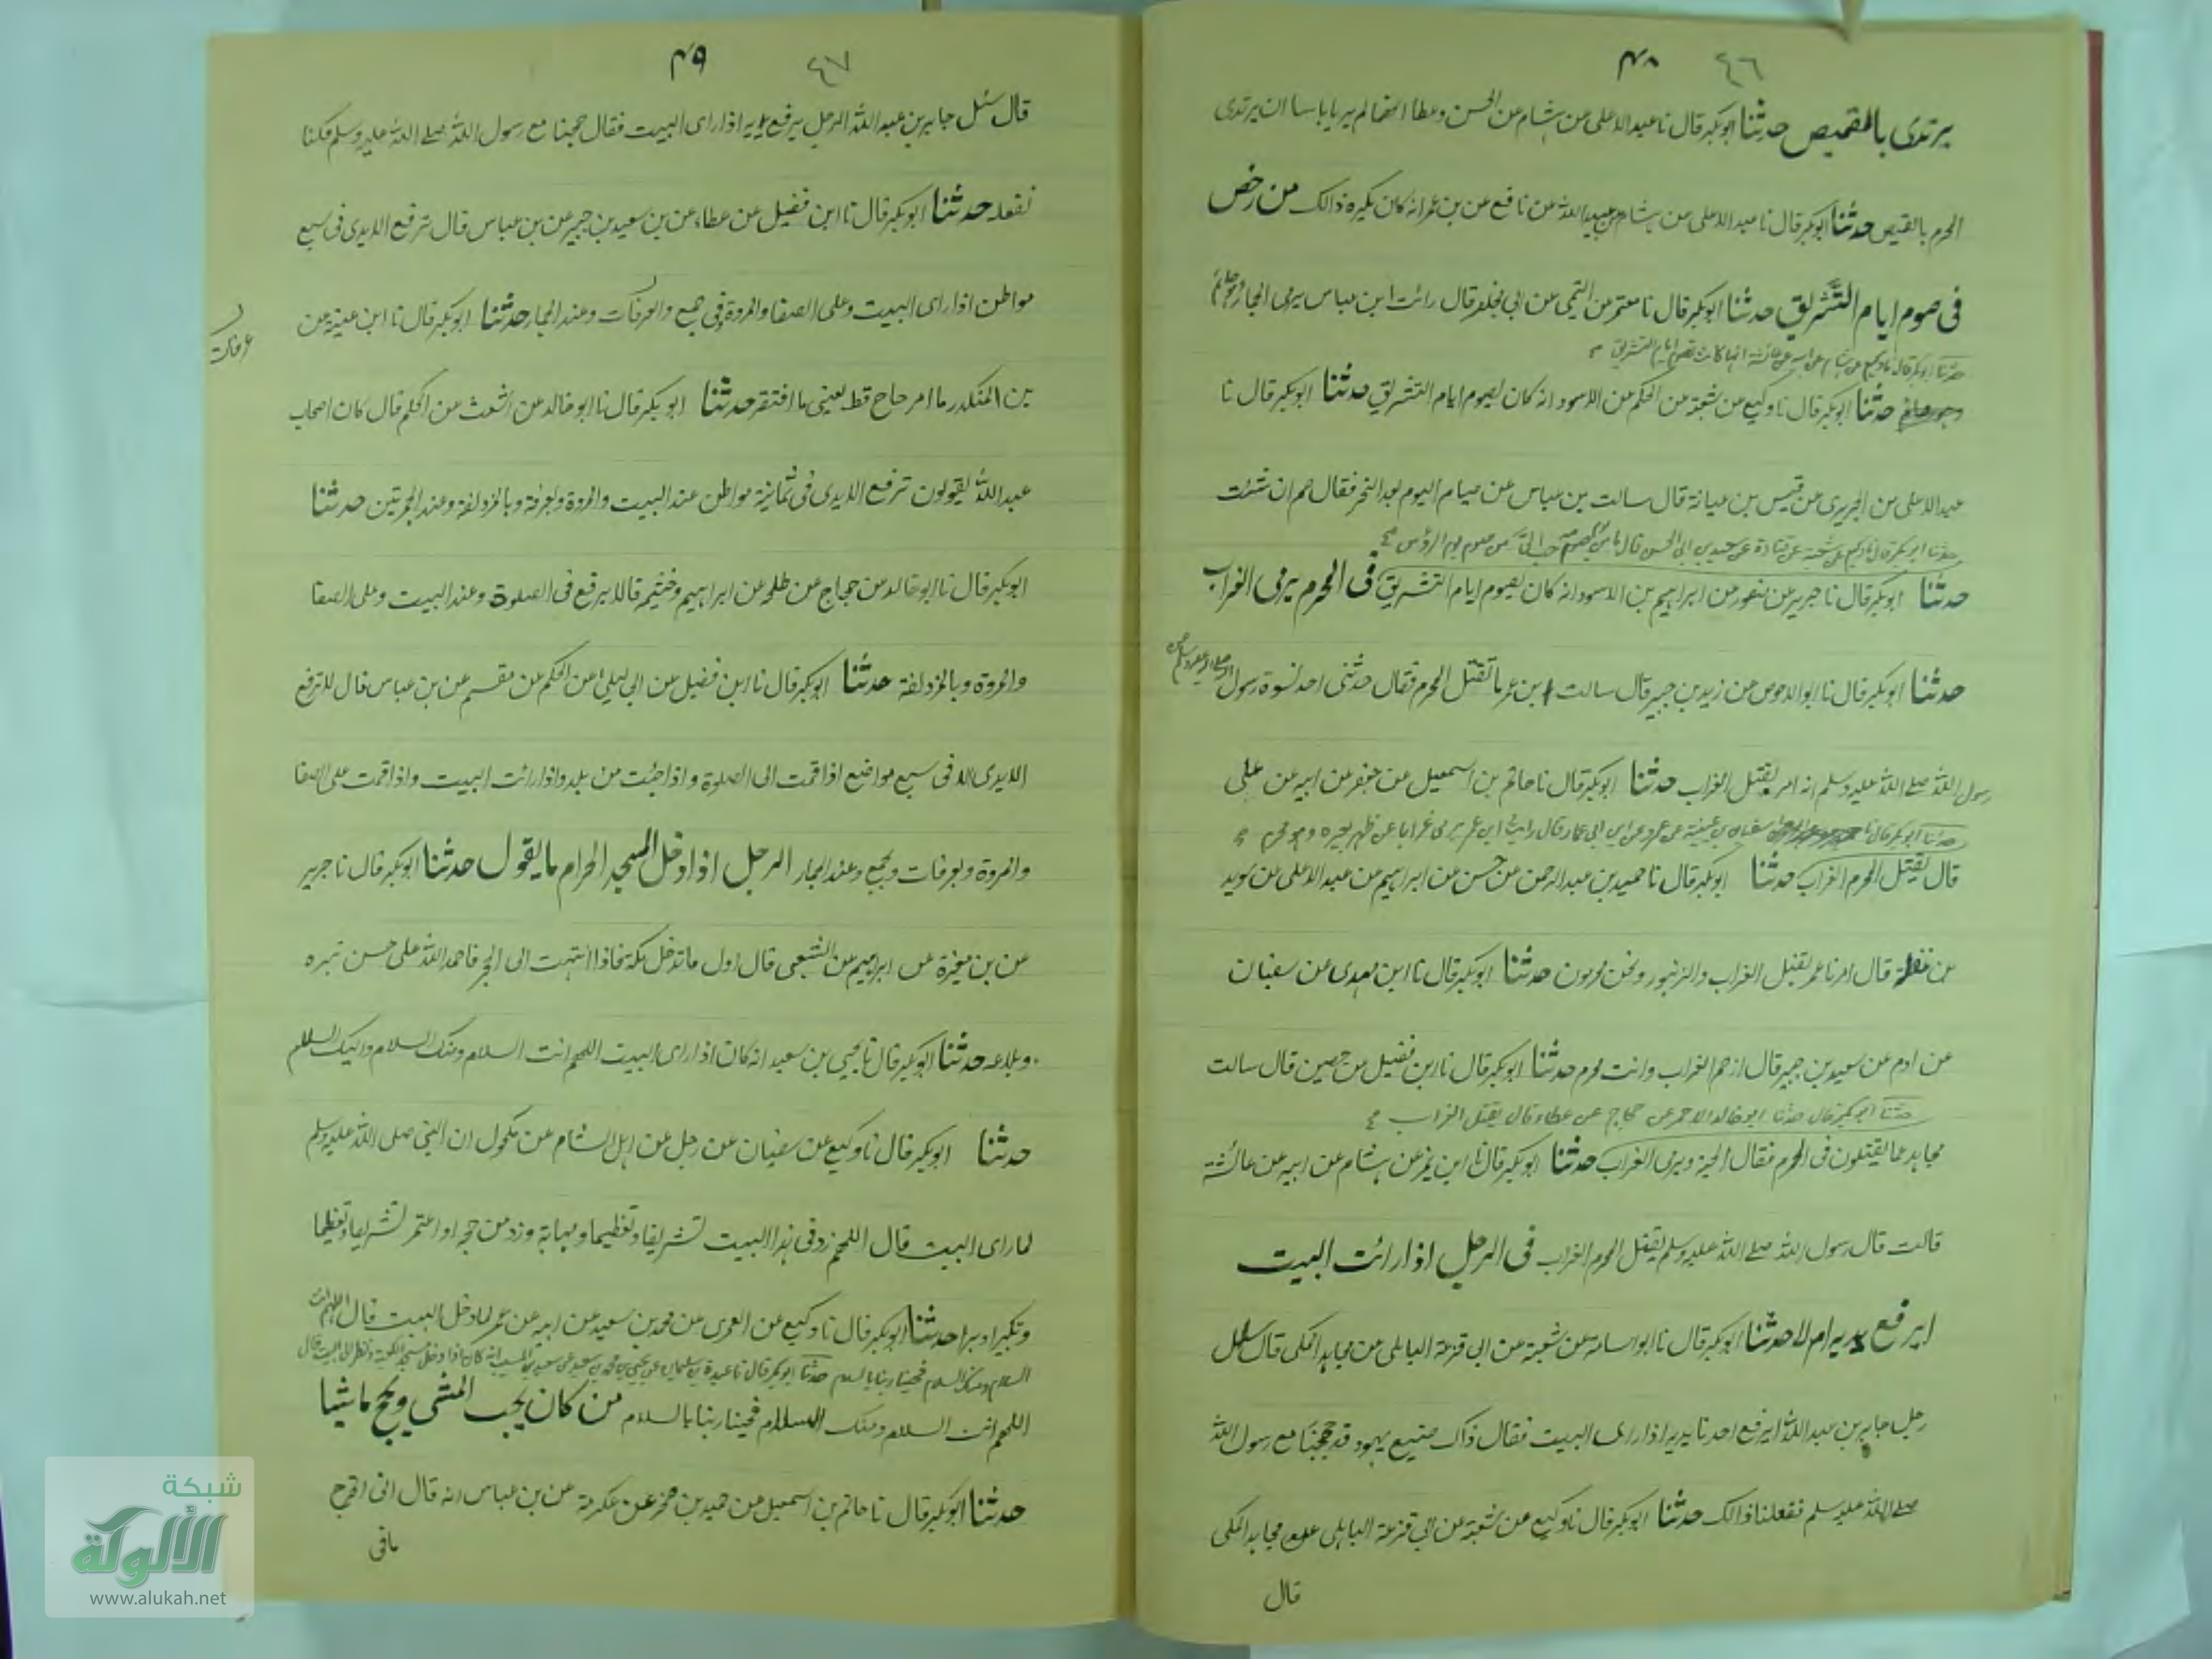 ٤٦ ٤٨
يرتدى بالقميص حدثنا ابوبكر قال نا عبد الاعلى عن هشام عن الحسن وعطا انهما لم يريا باسا ان يرتدى
المحرم بالقميص حدثنا ابوبكر قال نا عبد الاعلى عن هشام عن عبيد الله عن نافع عن بن عمر انه كان يكره ذالك من رخص
فى صوم ايام التشريق حدثنا ابوبكر قال نا معتمر عن التيمى عن ابى مخلد قال رائت ابن عباس يرمى الجمار
حدثنا ابوبكر قال نا وكيع عن هشام عن ابيه عن عائشة انها كانت تصوم ايام التشريق
حدثنا ابوبكر قال نا وكيع عن شعبة عن الحكم عن الاسود انه كان يصوم ايام التشريق حدثنا ابوبكر قال نا
عبد الاعلى عن الجريرى عن قيس بن عباية قال سالت بن عباس عن صيام اليوم بعد النحر فقال صم ان شئت
حدثنا ابوبكر قال نا وكيع عن شعبة عن قتادة عن سعيد بن ابى الحسن قال ما من يوم احب الىّ من صوم يوم الرؤس
حدثنا ابوبكر قال نا جرير عن منصور عن ابراهيم بن الاسود انه كان يصوم ايام التشريق فى المحرم يرمى الغراب
حدثنا ابوبكر قال نا ابو الاحوص عن زيد بن جبير قال سالت ابن عمر ما تقتل المحرم فقال حدثنى احد نسوة رسول
رسول الله صلے الله عليه وسلم انه امر بقتل الغراب حدثنا ابوبكر قال نا حاتم بن اسمعيل عن جعفر عن ابيه عن على
حدثنا ابوبكر قال نا سفيان بن عيينة عن عمرو عن ابن ابى عمار قال رايت ابن عمر يرمى غرابا عن ظهر بعيره وهو محرم
قال يقتل المحرم الغراب حدثنا ابوبكر قال نا حميد بن عبد الرحمن عن حسن عن ابراهيم عن عبد الاعلى عن سويد
بن غفلة قال امرنا عمر بقتل الغراب والزنبور ونحن محرمون حدثنا ابوبكر قال نا ابن مهدى عن سفيان
عن ادم عن سعيد بن جبير قال ازحم الغراب وانت محرم حدثنا ابوبكر قال نا ابن فضيل عن حصين قال سالت
حدثنا ابوبكر قال حدثنا ابو خالد الاحمر عن حجاج عن عطاء قال يقتل الغراب
مجاهد عما يقتلون فى المحرم فقال الحية ويرمى الغراب حدثنا ابوبكر قال نا ابن نمير عن هشام عن ابيه عن عائشة
قالت قال رسول الله صلے الله عليه وسلم يقتل المحرم الغراب فى الرجل اذا رائت البيت
ايرفع يديه ام لا حدثنا ابوبكر قال نا ابو اسامة عن شعبة عن ابى قزعة الباهلى عن مجاهد المكى قال سئل
رجل جابر بن عبد الله ايرفع احدنا يديه اذا راى البيت فقال ذاك صنيع يهود قد حججنا مع رسول الله
صلے الله عليه وسلم ففعلنا ذالك حدثنا ابوبكر قال نا وكيع عن شعبة عن ابى قزعة الباهلى عن مجاهد المكى
قال
٤٧ ٤٩
قال سئل جابر بن عبد الله الرجل يرفع يديه اذا راى البيت فقال حججنا مع رسول الله صلے الله عليه وسلم فكنا
نفعله حدثنا ابوبكر قال نا ابن فضيل عن عطاء عن بن سعيد بن جبير عن بن عباس قال ترفع الايدى فى سبع
مواطن اذا راى البيت وعلى الصفا والمروة وفى جمع والعرفات وعند الجمار حدثنا ابوبكر قال نا ابن عيينة عن
عرفات
بن المنكدر ما امر حاج قط يعنى ما افتقر حدثنا ابوبكر قال نا ابو خالد عن اشعث عن الحكم قال كان اصحاب
عبد الله يقولون ترفع الايدى فى ثمانية مواطن عند البيت والمروة وبعرفة وبالمزدلفة وعند الجمرتين حدثنا
ابوبكر قال نا ابو خالد عن حجاج عن طلحة عن ابراهيم وخيثم قالا يرفع فى الصلوة وعند البيت وعلى الصفا
والمروة وبالمزدلفة حدثنا ابوبكر قال نا ابن فضيل عن ابى ليلى عن الحكم عن مقسم عن بن عباس قال لا ترفع
الايدى الا فى سبع مواضع اذا قمت الى الصلوة واذا جئت من بلد واذا رائت البيت واذا قمت على الصفا
والمروة وبعرفات وبجمع وعند الجمار الرجل اذا دخل المسجد الحرام ما يقول حدثنا ابوبكر قال نا جرير
عن بن مغيرة عن ابراهيم عن الشعبى قال اول ما تدخل مكة فاذا انتهت الى الحجر فاحمد الله على حسن تيسره
وبلاغه حدثنا ابوبكر قال نا يحيى بن سعيد انه كان اذا راى البيت اللهم انت السلام ومنك السلام واليك السلام
حدثنا ابوبكر قال نا وكيع عن سفيان عن رجل من اهل الشام عن مكحول ان النبى صلى الله عليه وسلم
لما راى البيت قال اللهم زد فى هذا البيت تشريفا وتعظيما ومهابة وزد من حجه او اعتمر تشريفا وتعظيما
وتكبيرا وبرا حدثنا ابوبكر قال نا وكيع عن العمرى عن محمد بن سعيد عن ابيه عن عمر لما دخل البيت قال اللهم انت
السلام ومنك السلام فحينا ربنا بالسلام حدثنا ابوبكر قال نا عبدة بن سليمان عن يحيى بن محمد بن سعيد عن سعيد بن المسيب انه كان اذا دخل مسجد الكعبة ونظر الى البيت قال
اللهم انت السلام ومنك السلام فحينا ربنا بالسلام من كان يحب المشى ويحج ماشيا
حدثنا ابوبكر قال نا حاتم بن اسمعيل عن حميد بن صخر عن عكرمة عن بن عباس انه قال انى اخرج
ما فى
شبكة
الألوكة
www.alukah.net